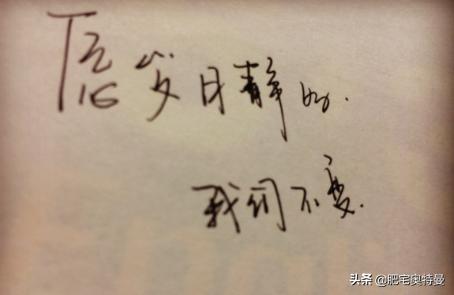 岁月静好.
我们不变.
头条 @肥宅奥特曼